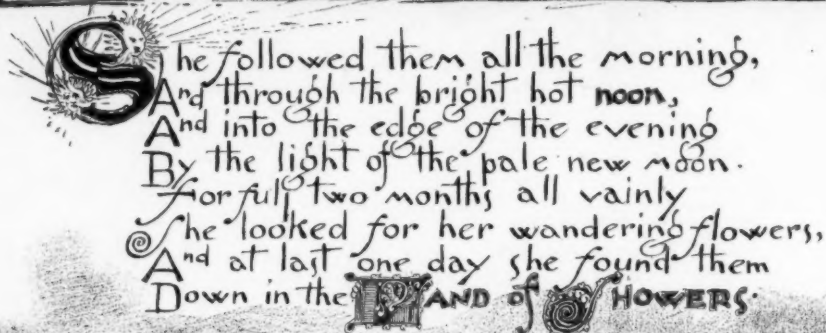 She followed them all the morning,
And through the bright hot noon,
And into the edge of the evening
By the light of the pale new moon.
For full two months all vainly
She looked for her wandering flowers,
And at last one day she found them
Down in the LAND of SHOWERS.